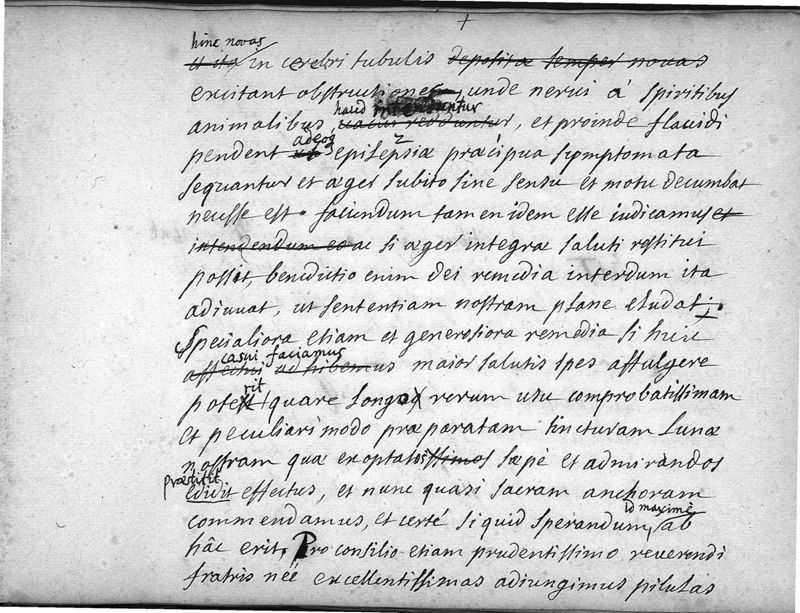 +
hinc novas
ut ita in cerebri tubulis deposita semper novas
excitant obstructiones, unde nervi à spiritibus
haud
animalibus, redduntur, et proinde flavidi
adeoq 2
pendent ut epilepsiæ præcipua symptomata
sequantur et æger subito sine sensu et motu decumbat
neusse est. faciendum tamen idem esse iudicamus et
intendendum eo ac si æger integræ saluti restitui
possit, benedictio enim dei remedia interdum ita
adiuvat, ut sententiam nostram plane eludat.
Specialiora etiam et generosiora remedia si huic
casui faciamus
affectui adhibemus maior salutis spes affulgere
rit
potest quare longo rerum usu comprobatissimam
et peculiari modo præparatam tincturam Lunæ
nostram quæ exoptatissimos sæpè et admirandos
præstitit
edidit effectus, et nunc quasi sacram anchoram
id maximè
commendamus, et certé si quid sperandum, ab
hâc erit. Pro consilio etiam prudentissimo reverendi
fratris néé excellentissimas adiungimus pilulas